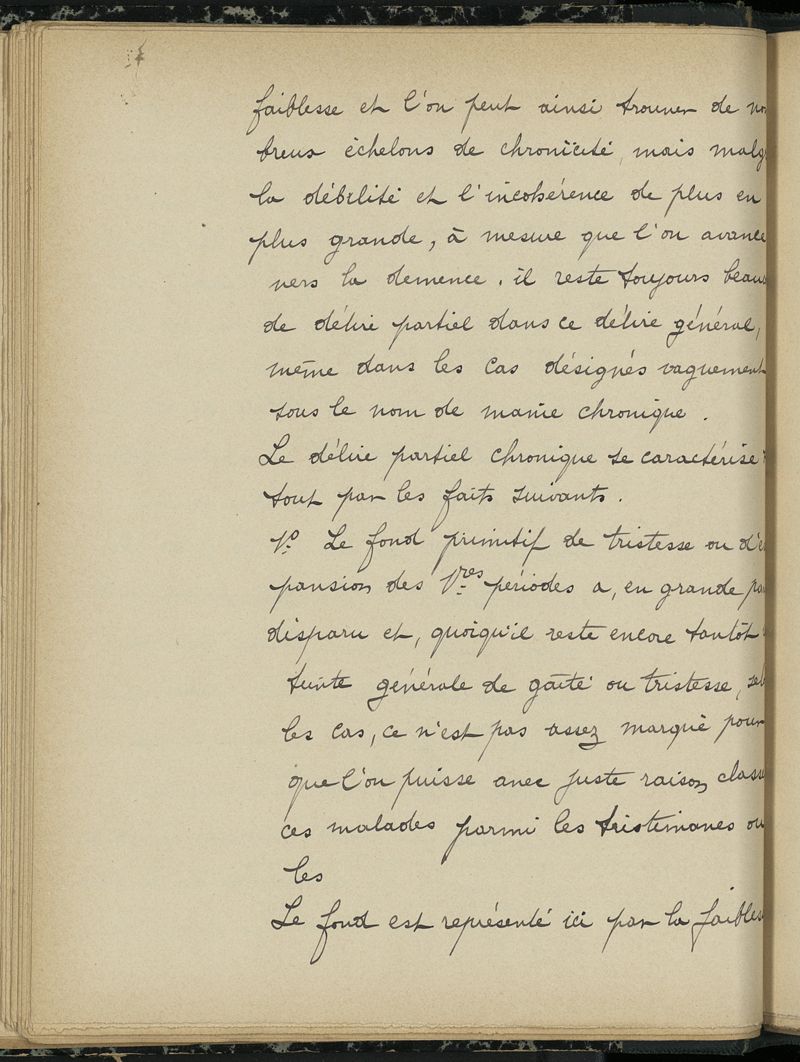 faiblesse et l'on peut ainsi trouver de nom
breux échelons de chronicité, mais malg
la débilité et l'incohérence de plus en
plus grande, à mesure que l'on avance
vers la demence. il reste toujours beau
de délire partiel dans ce délire général,
même dans les cas désignés vaguement
sous le nom de manie chronique.
Le délire partiel chronique se caractérise
tout par les faits suivants.
1º. Le fond primitif de tristesse ou d'e
pansion des 1res périodes a, en grande pa
disparu et, quoiqu'il reste encore tantôt
teinte générale de gaîté ou tristesse, sel
les cas, ce n'est pas assez marqué pour
que l'on puisse avec juste raison class
ces malades parmi les tristimanes ou
les
Le fond est représenté ici par la faibles